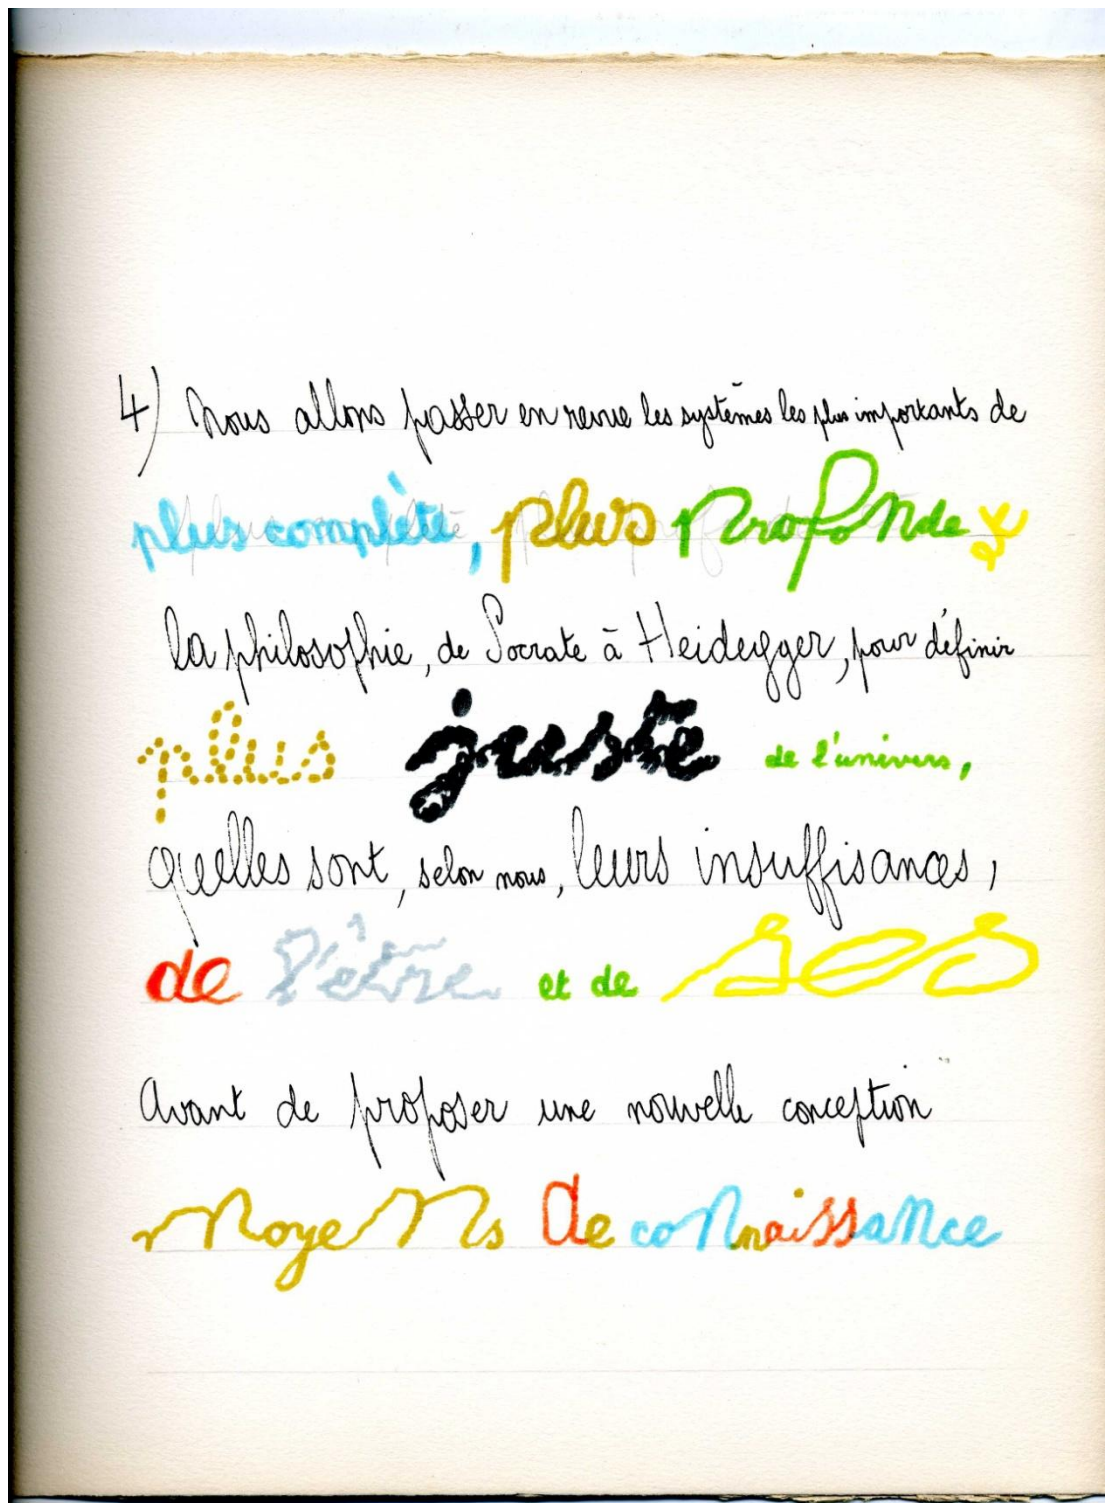 4) Nous allons passer en revue les systèmes les plus importants de
plus complète, plus profonde et
la philosophie, de Socrate à Heidegger, pour définir
plus juste de l'univers,
quelles sont, selon nous, leurs insuffisances,
de l'être et de ses
Avant de proposer une nouvelle conception
moyens de connaissance